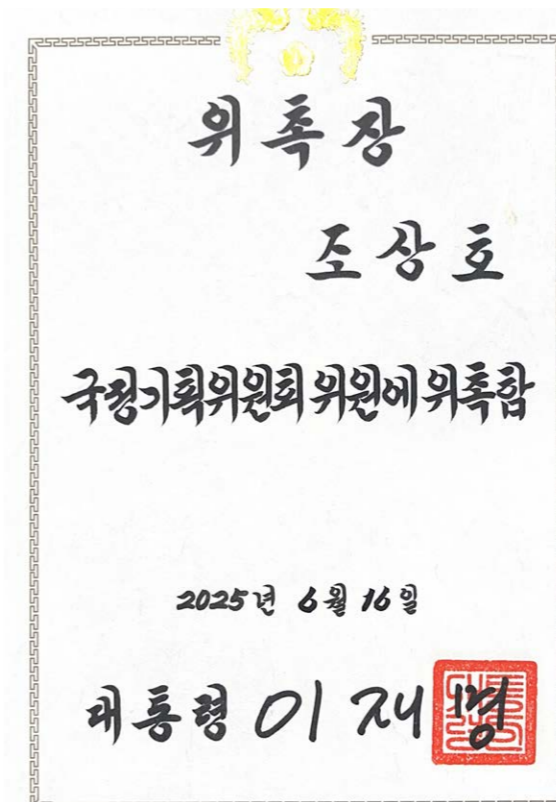 위촉장
조상호
국정기획위원회 위원에 위촉함
2025년 6월 16일
대통령 이재명